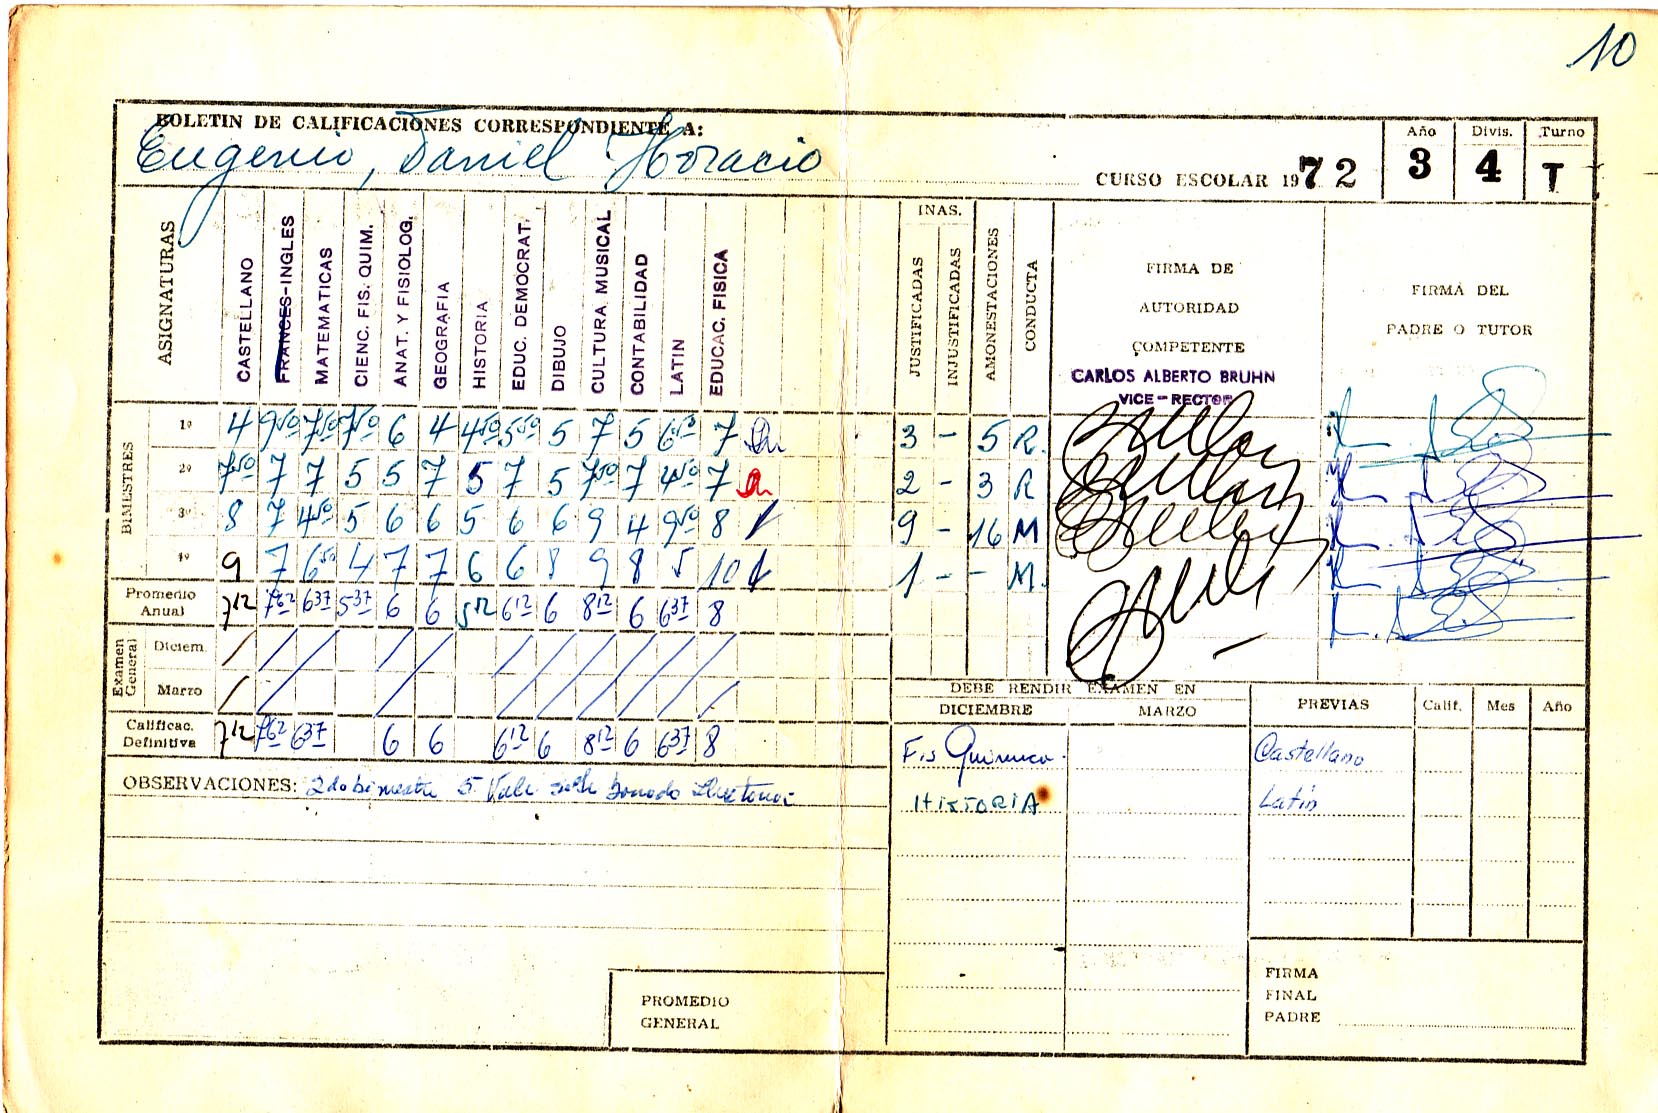 10
BOLETIN DE CALIFICACIONES CORRESPONDIENTE A:
Eugenio, Daniel Horacio
CURSO ESCOLAR 1972
Año Divis. Turno
3 4 T
ASIGNATURAS CASTELLANO FRANCES-INGLES MATEMATICAS CIENC. FIS. QUIM. ANAT. Y FISIOLOG. GEOGRAFIA HISTORIA EDUC. DEMOCRAT. DIBUJO CULTURA MUSICAL CONTABILIDAD LATIN EDUCAC. FISICA
INAS.
JUSTIFICADAS INJUSTIFICADAS AMONESTACIONES CONDUCTA
FIRMA DE
AUTORIDAD
COMPETENTE
CARLOS ALBERTO BRUHN
VICE-RECTOR
FIRMA DEL
PADRE O TUTOR
BIMESTRES
1º 4 9 50 7 50 7 50 6 4 4 50 5 50 5 7 5 6 50 7 3 - 5 R.
2º 7 50 7 7 5 5 7 5 7 5 7 50 7 4 50 7 2 - 3 R
3º 8 7 4 50 5 6 6 5 6 6 9 4 9 50 8 9 - 16 M
4º 9 7 6 50 4 7 7 6 6 8 9 8 5 10 1 - - M.
Promedio Anual 7 12 7 62 6 37 5 37 6 6 5 12 6 12 6 8 12 6 6 37 8
Examen General
Diciem.
Marzo
Calificac. Definitiva 7 12 7 62 6 37 6 6 6 12 6 8 12 6 6 37 8
OBSERVACIONES: 2do bimestre 5. Vale
DEBE RENDIR EXAMEN EN
DICIEMBRE MARZO
Fis Quimica.
HISTORIA
PREVIAS Calif. Mes Año
Castellano
Latin
PROMEDIO
GENERAL
FIRMA
FINAL
PADRE